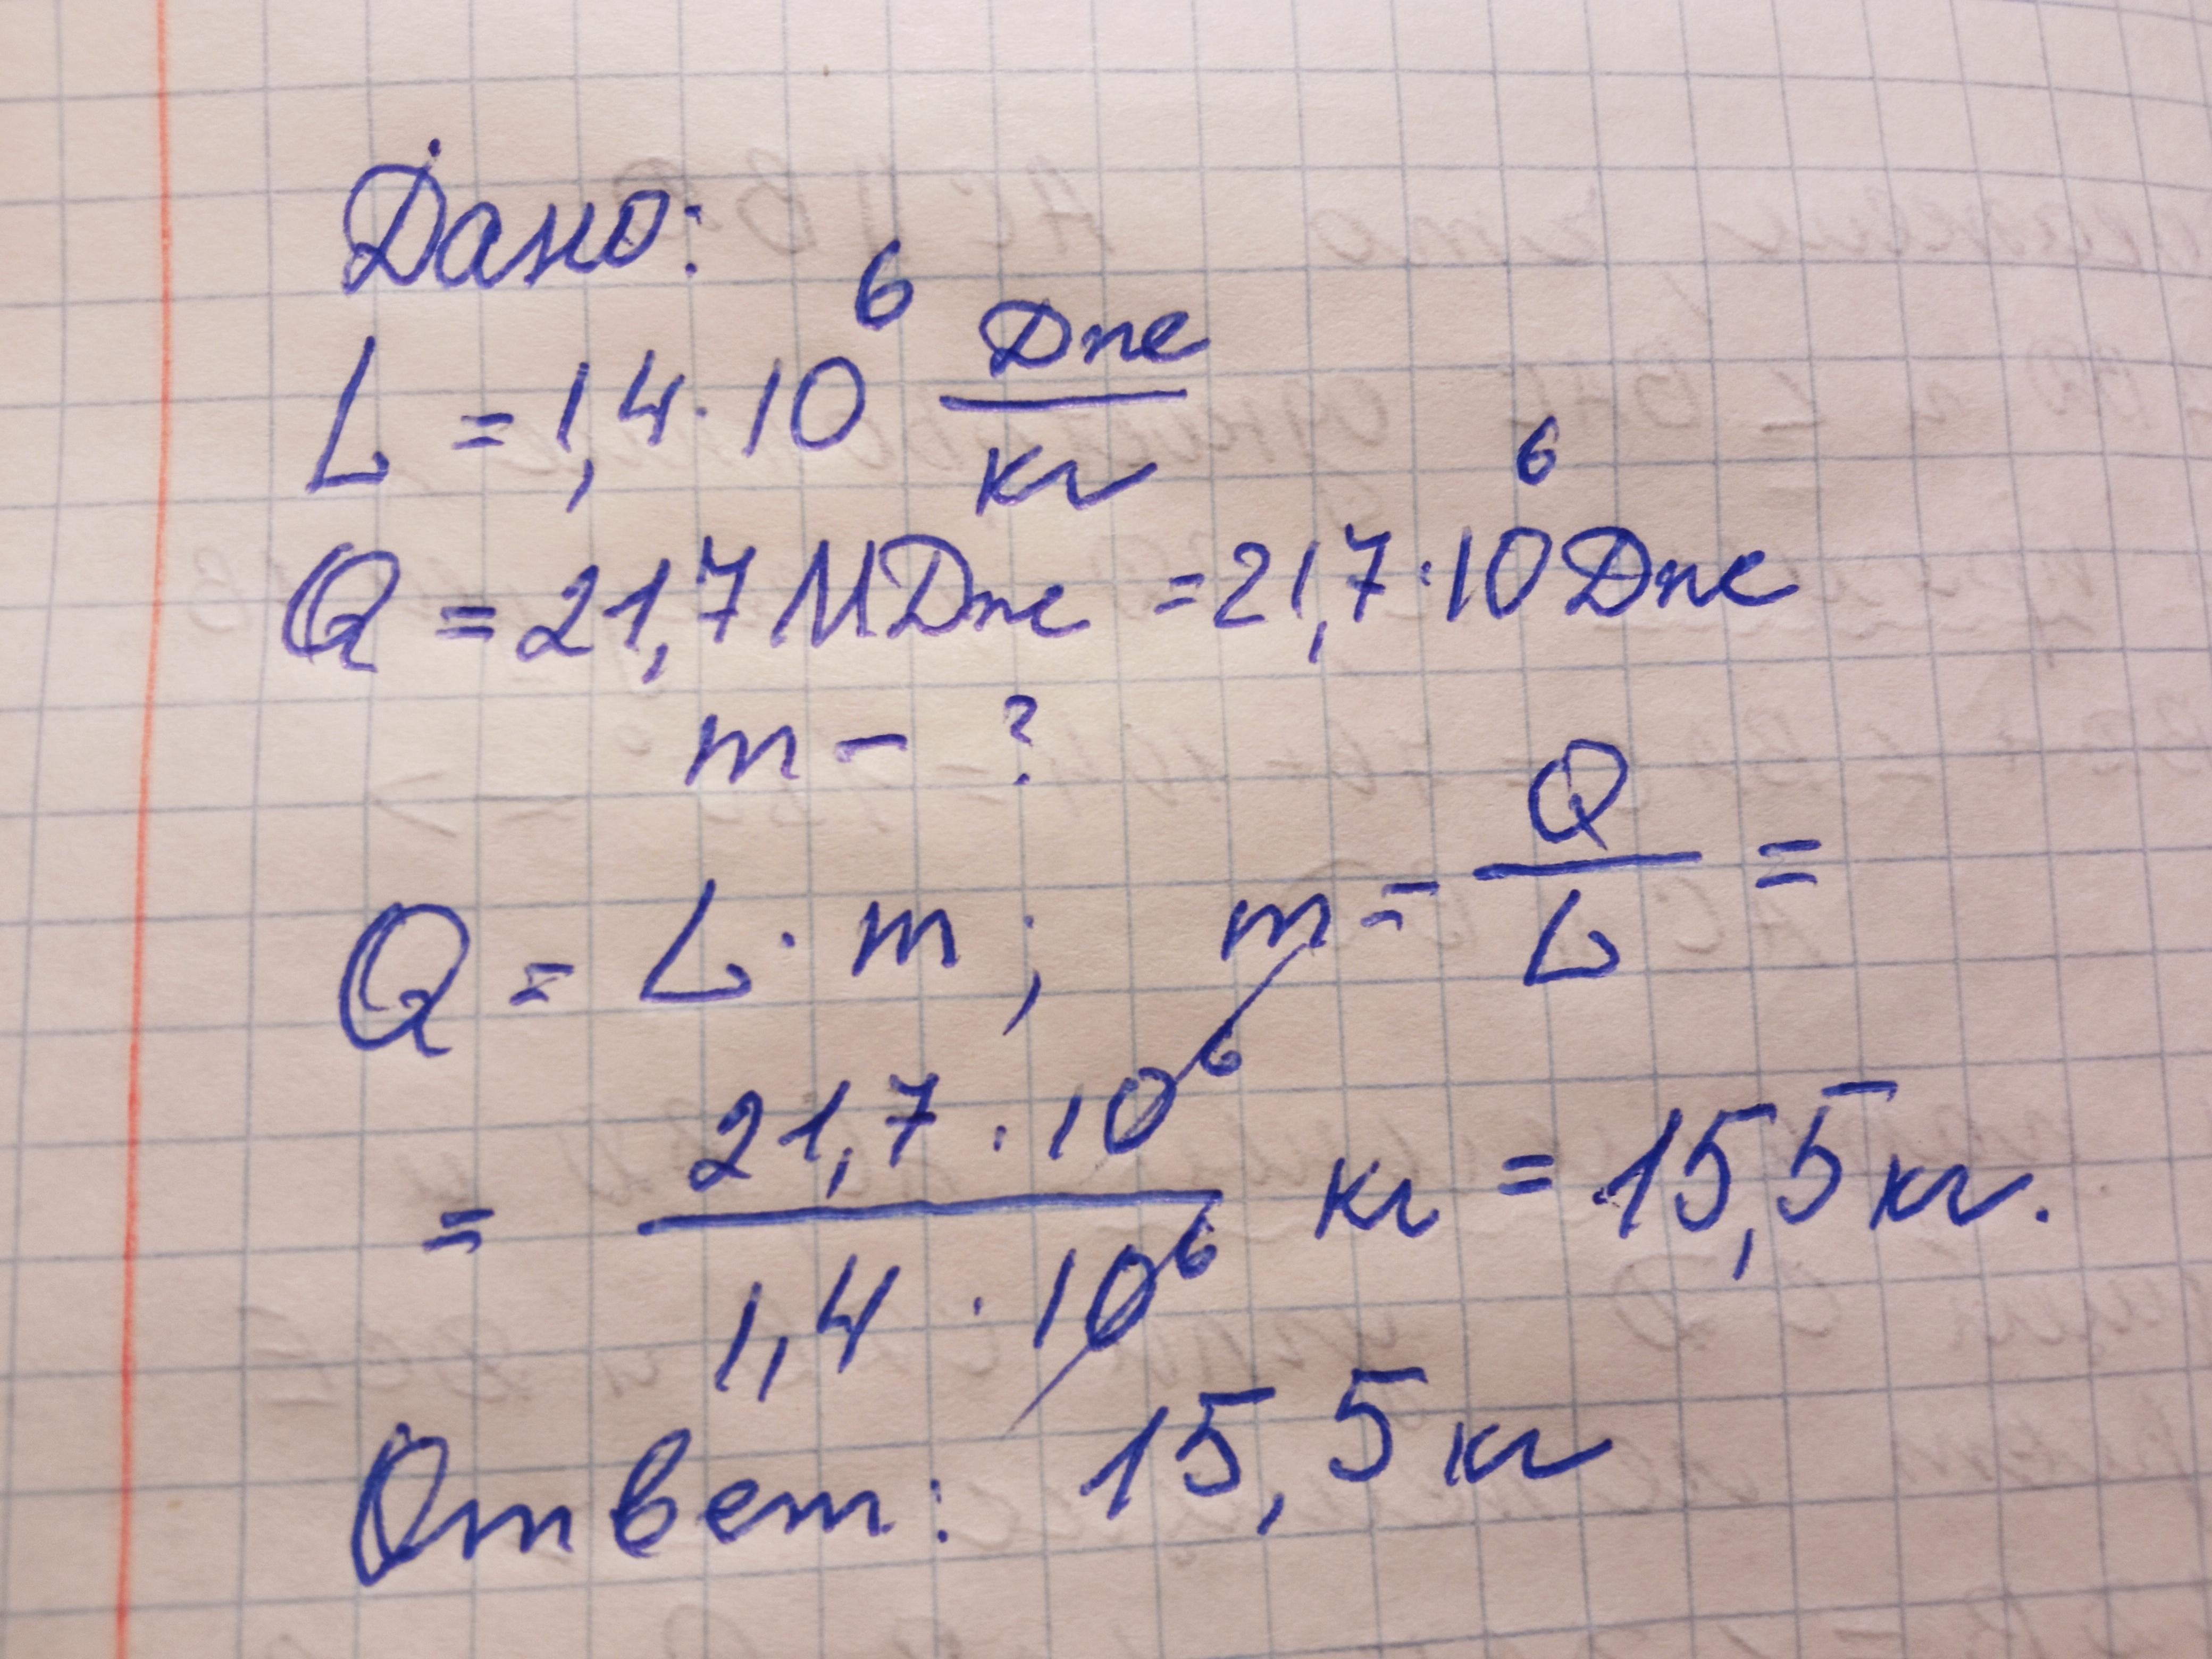 Дано:
L = 1,4 · 10⁶ Дж/кг
Q = 21,7 МДж = 21,7 · 10⁶ Дж
m – ?
Q = L · m ; m = Q/L =
= 21,7 · 10⁶ / 1,4 · 10⁶ кг = 15,5 кг.
Ответ: 15,5 кг